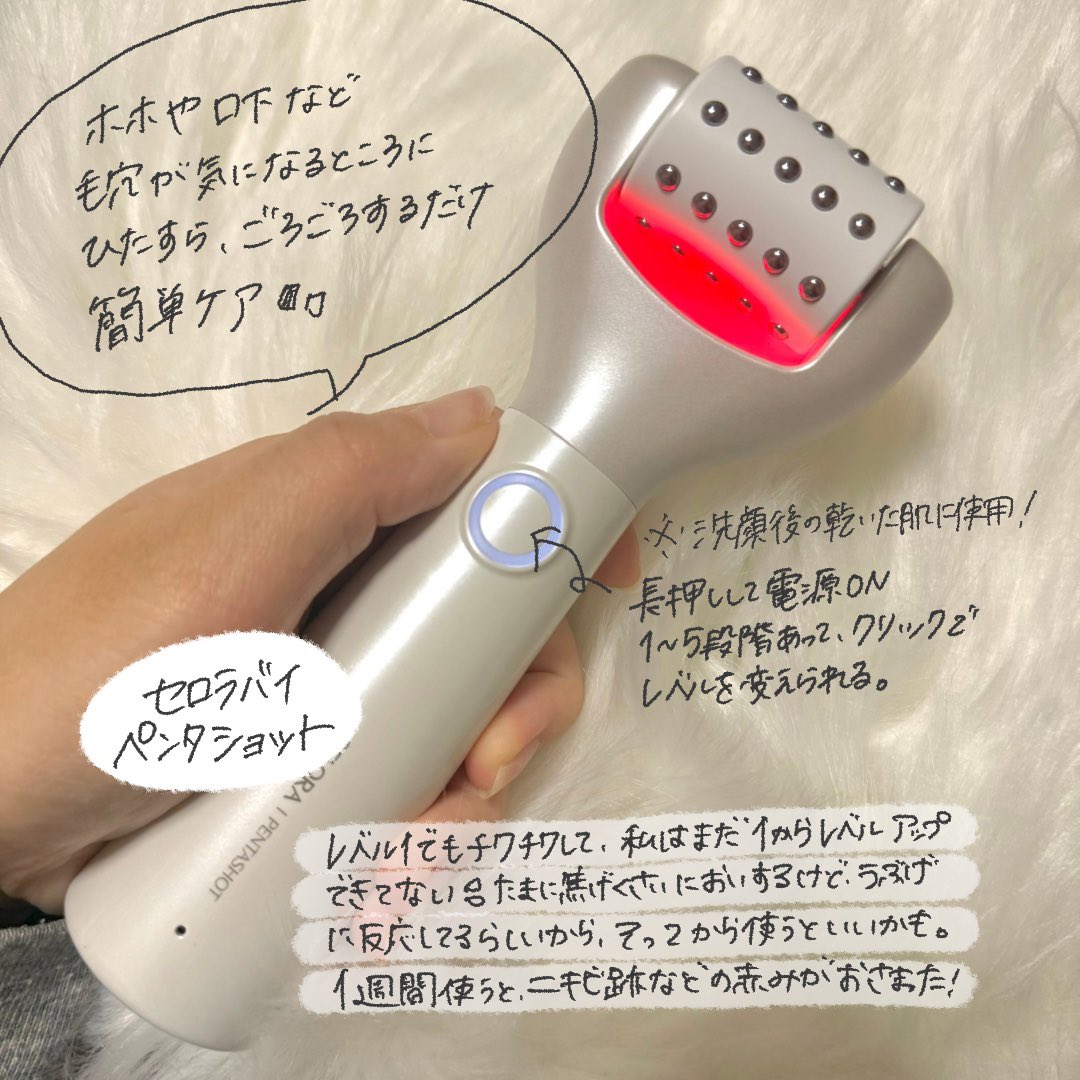 ホホや口下など
毛穴が気になるところに
ひたすら、ごろごろするだけ
簡単ケア
※洗顔後の乾いた肌に使用!
長押しして電源ON
1~5段階あって、クリックで
レベルを変えられる。
セロラバイ
ペンタショット
ORA | PENTASHOT
レベル1でもチクチクして、私はまだ1からレベルアップ
できてない たまに焦げくさいにおいするけど、うぶげ
に反応してるらしいから、そってから使うといいかも。
1週間使うと、ニキビ跡などの赤みがおさまった!